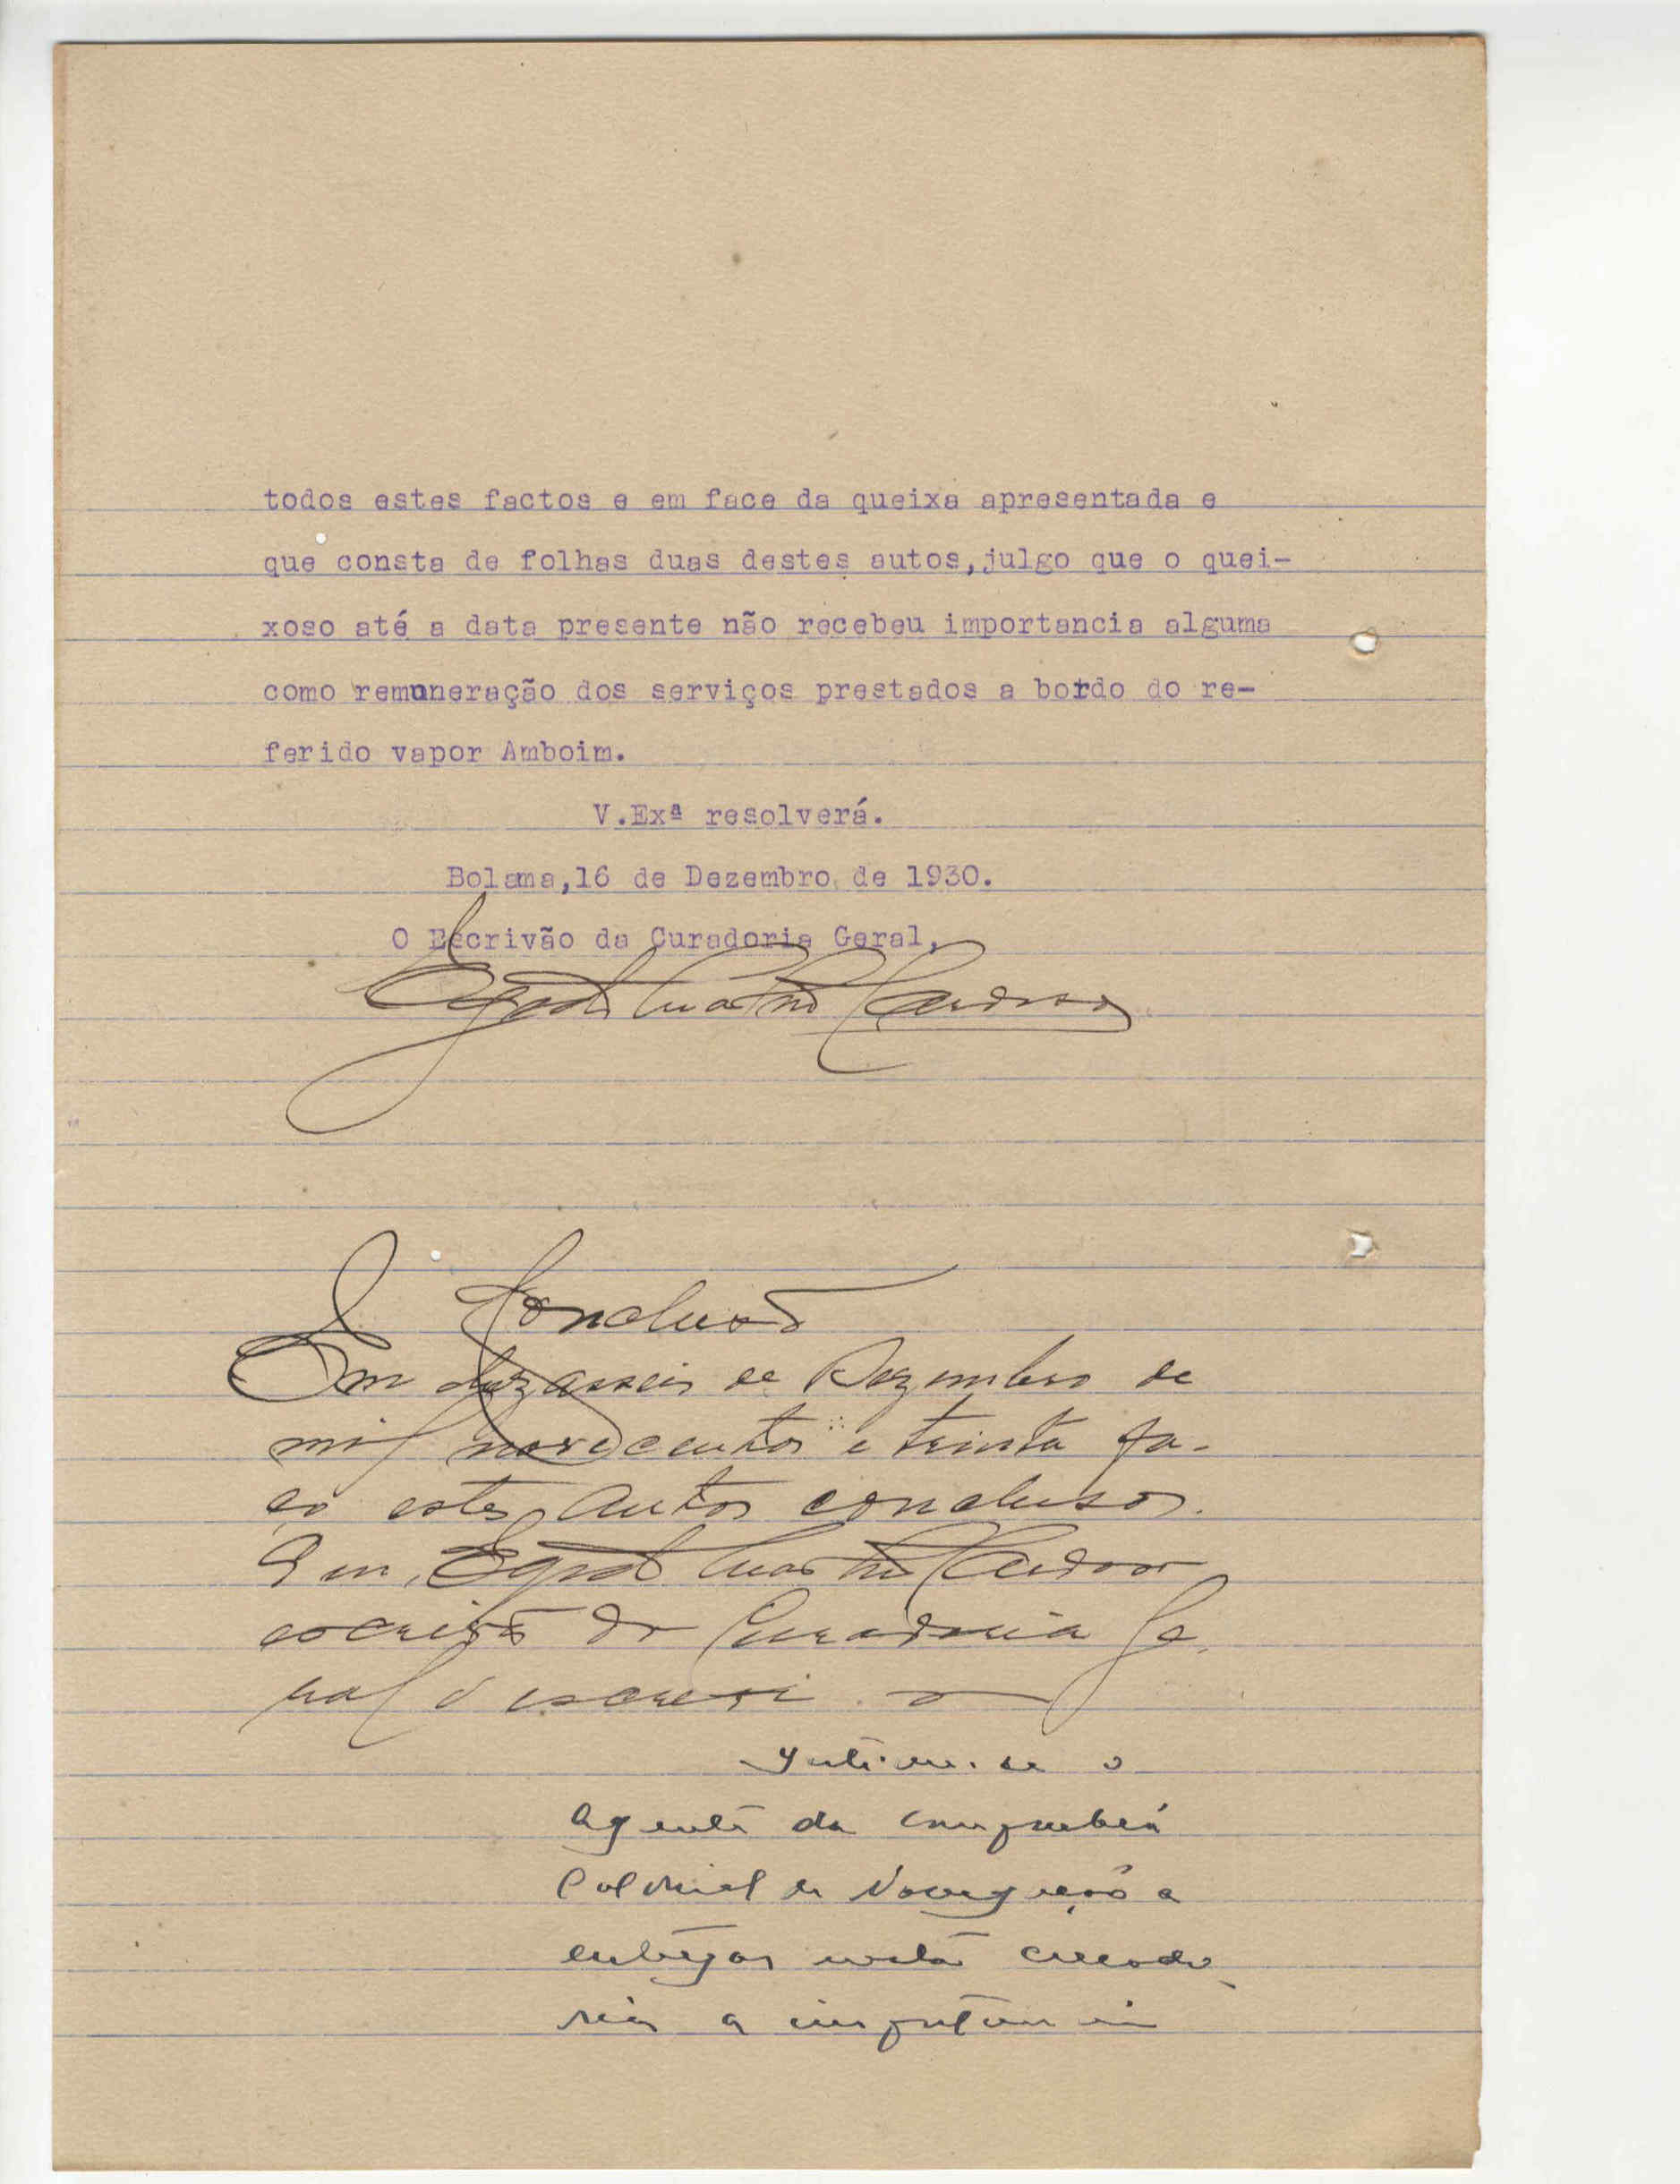 todos estes factos e em face da queixa apresentada e
que consta de folhas duas destes autos,julgo que o quei-
xoso até a data presente não recebeu importancia alguma
como remuneração dos serviços prestados a bordo do re-
ferido vapor Amboim.
V.Exª resolverá.
Bolama,16 de Dezembro de 1930.
O Escrivão da Curadoria Geral,
Cardoso
Conclusão
Em dezasseis de Dezembro de
mil novecentos e trinta fa-
ço estes autos conclusos.
Eu, Cardoso
escrivão da Curadoria Ge-
ral o escrevi.
Intime-se o
Agente da Companhia
Colonial de Navegação a
entregar nesta curado-
ria a importancia